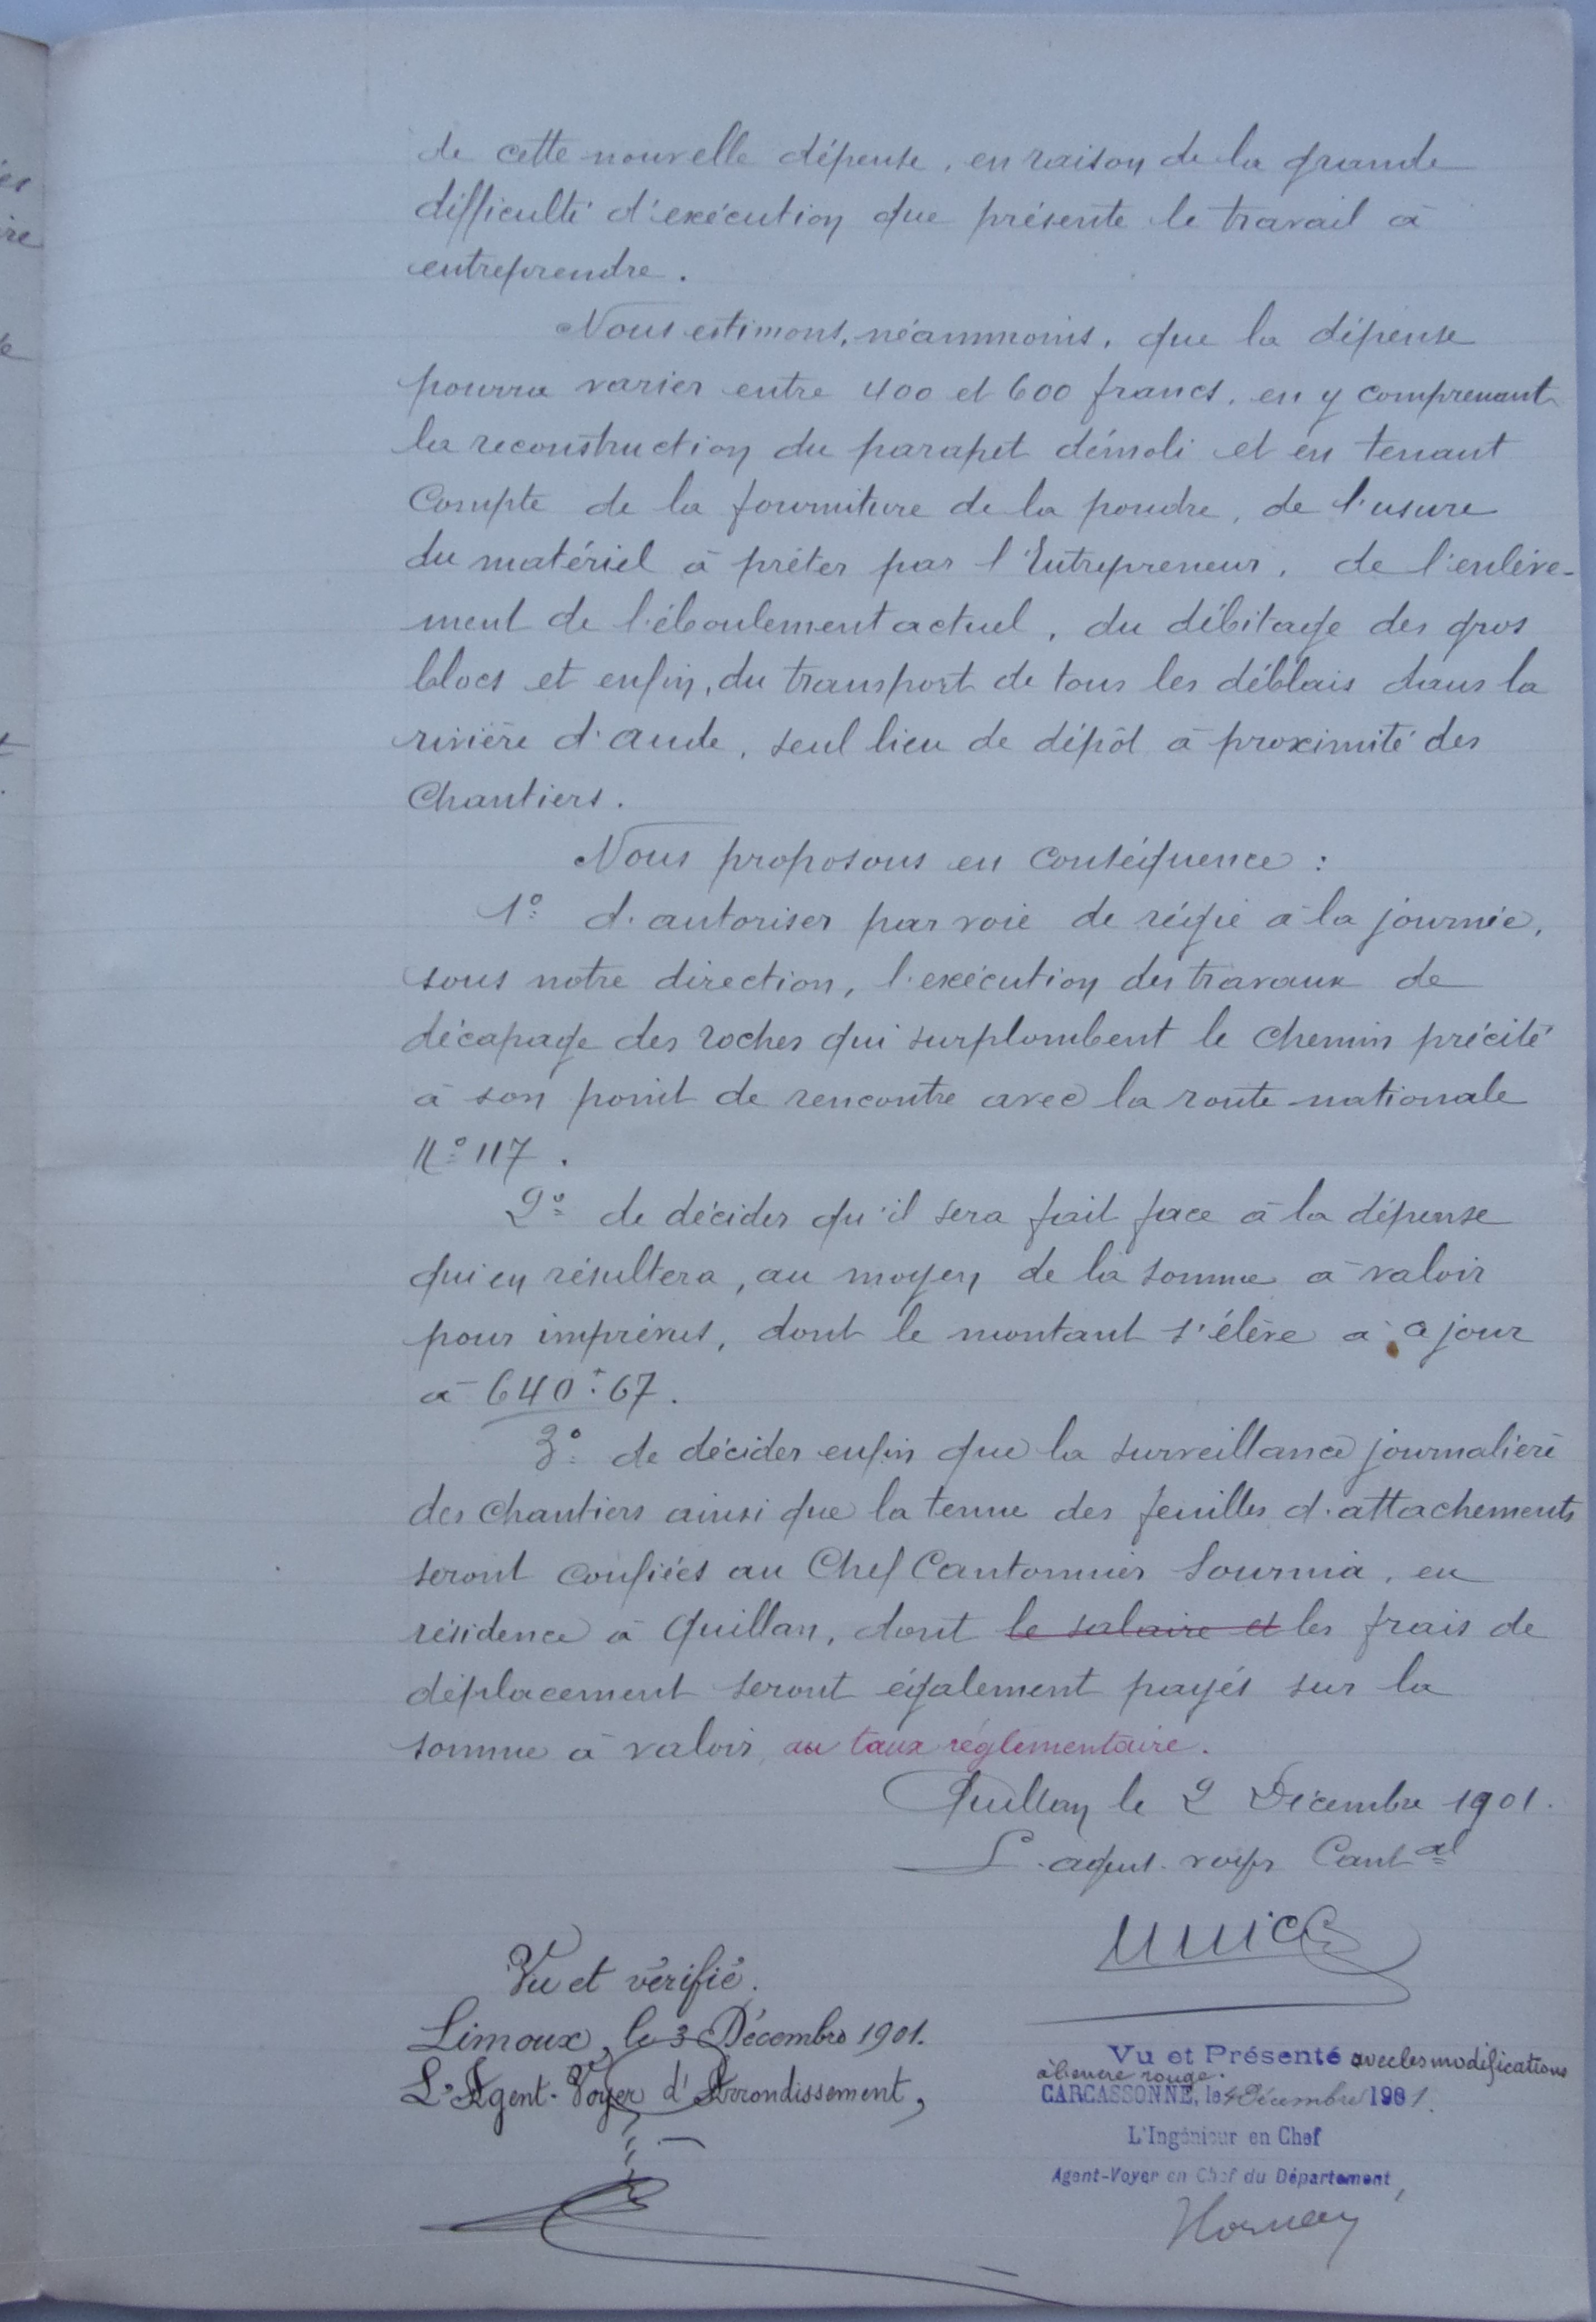 de cette nouvelle dépense, en raison de la grande
difficulté d'exécution que présente le travail à
entreprendre.
Nous estimons, néammoins, que la dépense
pourra varier entre 400 et 600 francs, en y comprenant
la reconstruction du parapet démoli et en tenant
Compte de la fourniture de la poudre, de l'usure
du matériel à prêter par l'Entrepreneur, de l'enlève-
ment de l'éboulement actuel, du débitage des gros
blocs et enfin, du transport de tous les déblais dans la
rivière d'aude, seul lieu de dépôt à proximité des
Chantiers.
Nous proposons en conséquence :
1º d'autoriser par voie de régie à la journée,
sous notre direction, l'exécution des travaux de
décapage des roches qui surplombent le chemin précité
à son point de rencontre avec la route nationale
Nº 117.
2º de décider qu'il sera fait face à la dépense
qui en résultera, au moyen de la somme à valoir
pour imprévus, dont le montant s'élève à ce jour
à 640f.67.
3º de décider enfin que la surveillance journalière
des chantiers ainsi que la tenue des feuilles d'attachements
seront confiées au Chef Cantonnier Sournia, en
résidence à Quillan, dont le salaire et les frais de
déplacement seront également payés sur la
somme à valoir, au taux réglementaire.
Quillan le 2 Décembre 1901.
L'agent-voyer Cantal
Vu et vérifié.
Limoux, le 3 Décembre 1901.
L'Agent-Voyer d'Arrondissement,
Vu et Présenté avec les modifications
à l'encre rouge.
CARCASSONNE, le 4 Décembre 1901.
L'Ingénieur en Chef
Agent-Voyer en Chef du Département,